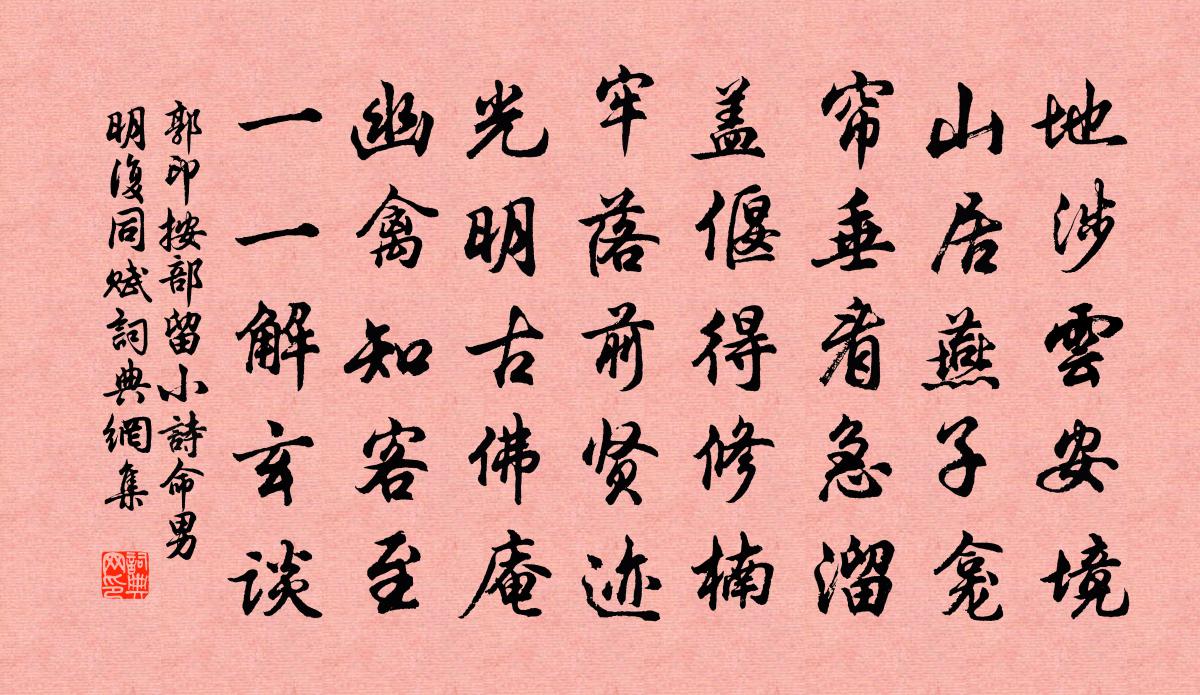 地涉雲安境
山居燕子龛
帘垂看急溜
盖偃得修楠
牢落前贤迹
光明古佛庵
幽禽知客至
一一解玄谈
郭印按部留小詩命男
明復同赋詞典網集
詞典网印